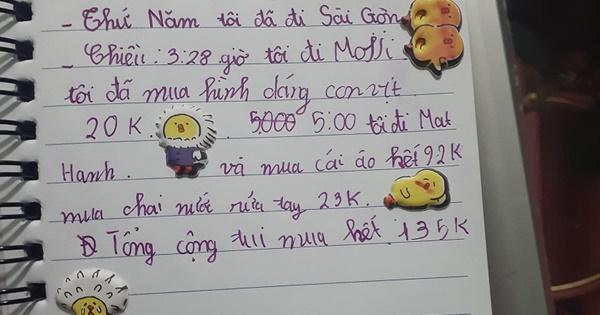 - Thứ Năm tôi đã đi Sài Gòn
- Chiều : 3:28 giờ tôi đi Moffi
tôi đã mua hình dáng con vịt
20 K. . 5000 5:00 tôi đi Mat
Hanh . và mua cái áo hết 92K
mua chai nước rửa tay 23K.
Tổng cộng tui mua hết .135K